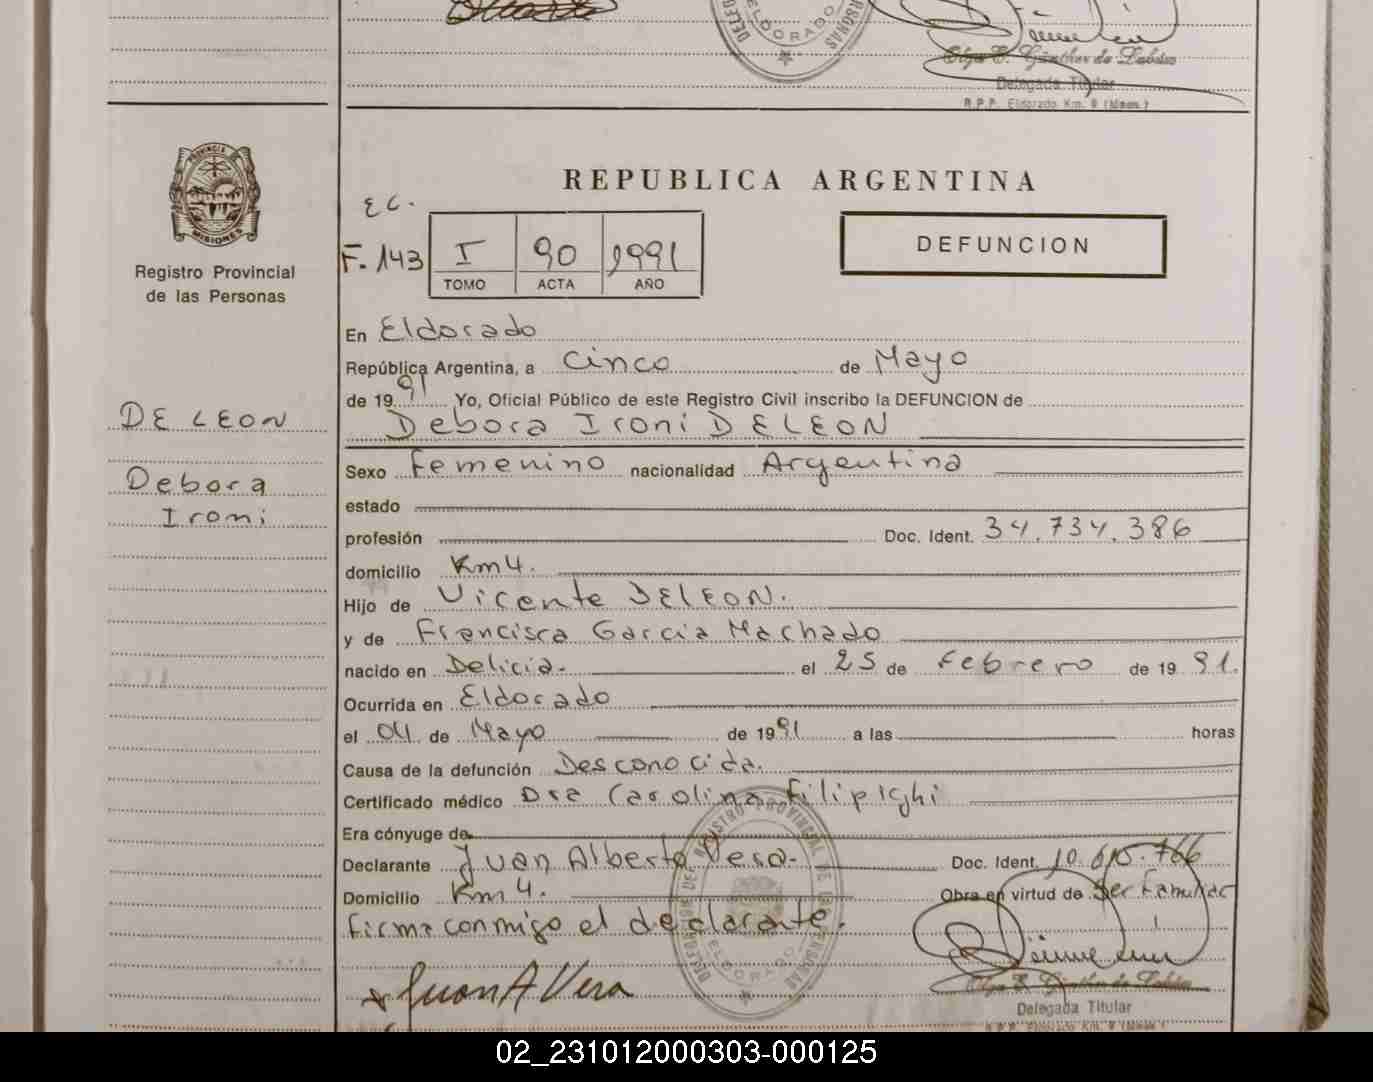 DELEGACION
ELDORADO
PERSONAS
Olga E. Günther de Labán
Delegada Titular
R.P.P. Eldorado Km. 9 (Mnes.)
PROVINCIA DE
MISIONES
Registro Provincial
de las Personas
REPUBLICA ARGENTINA
E C.
F. 143
I 90 1991
TOMO ACTA AÑO
DEFUNCION
En Eldorado
República Argentina, a cinco de Mayo
de 19 91 Yo, Oficial Público de este Registro Civil inscribo la DEFUNCION de
DE LEON
Debora Ironi DELEON
Debora
Ironi
Sexo Femenino nacionalidad Argentina
estado
profesión Doc. Ident. 34.734.386
domicilio Km 4.
Hijo de Vicente DELEON.
y de Francisca Garcia Machado
nacido en Delicia. el 25 de Febrero de 19 91.
Ocurrida en Eldorado
el 04 de Mayo de 1991 a las horas
Causa de la defunción Desconocida.
Certificado médico Dra Carolina Filipighi
Era cónyuge de
Declarante Juan Alberto Vera- Doc. Ident. 10.615.766
Domicilio Km 4. Obra en virtud de Ser Familiar
firma conmigo el declarante.
DELEGACION DEL REGISTRO PROVINCIAL DE LAS PERSONAS
ELDORADO
x Juan A Vera
Olga E. Günther de Labán
Delegada Titular
R.P.P. Eldorado Km. 9 (Mnes.)
02_231012000303-000125